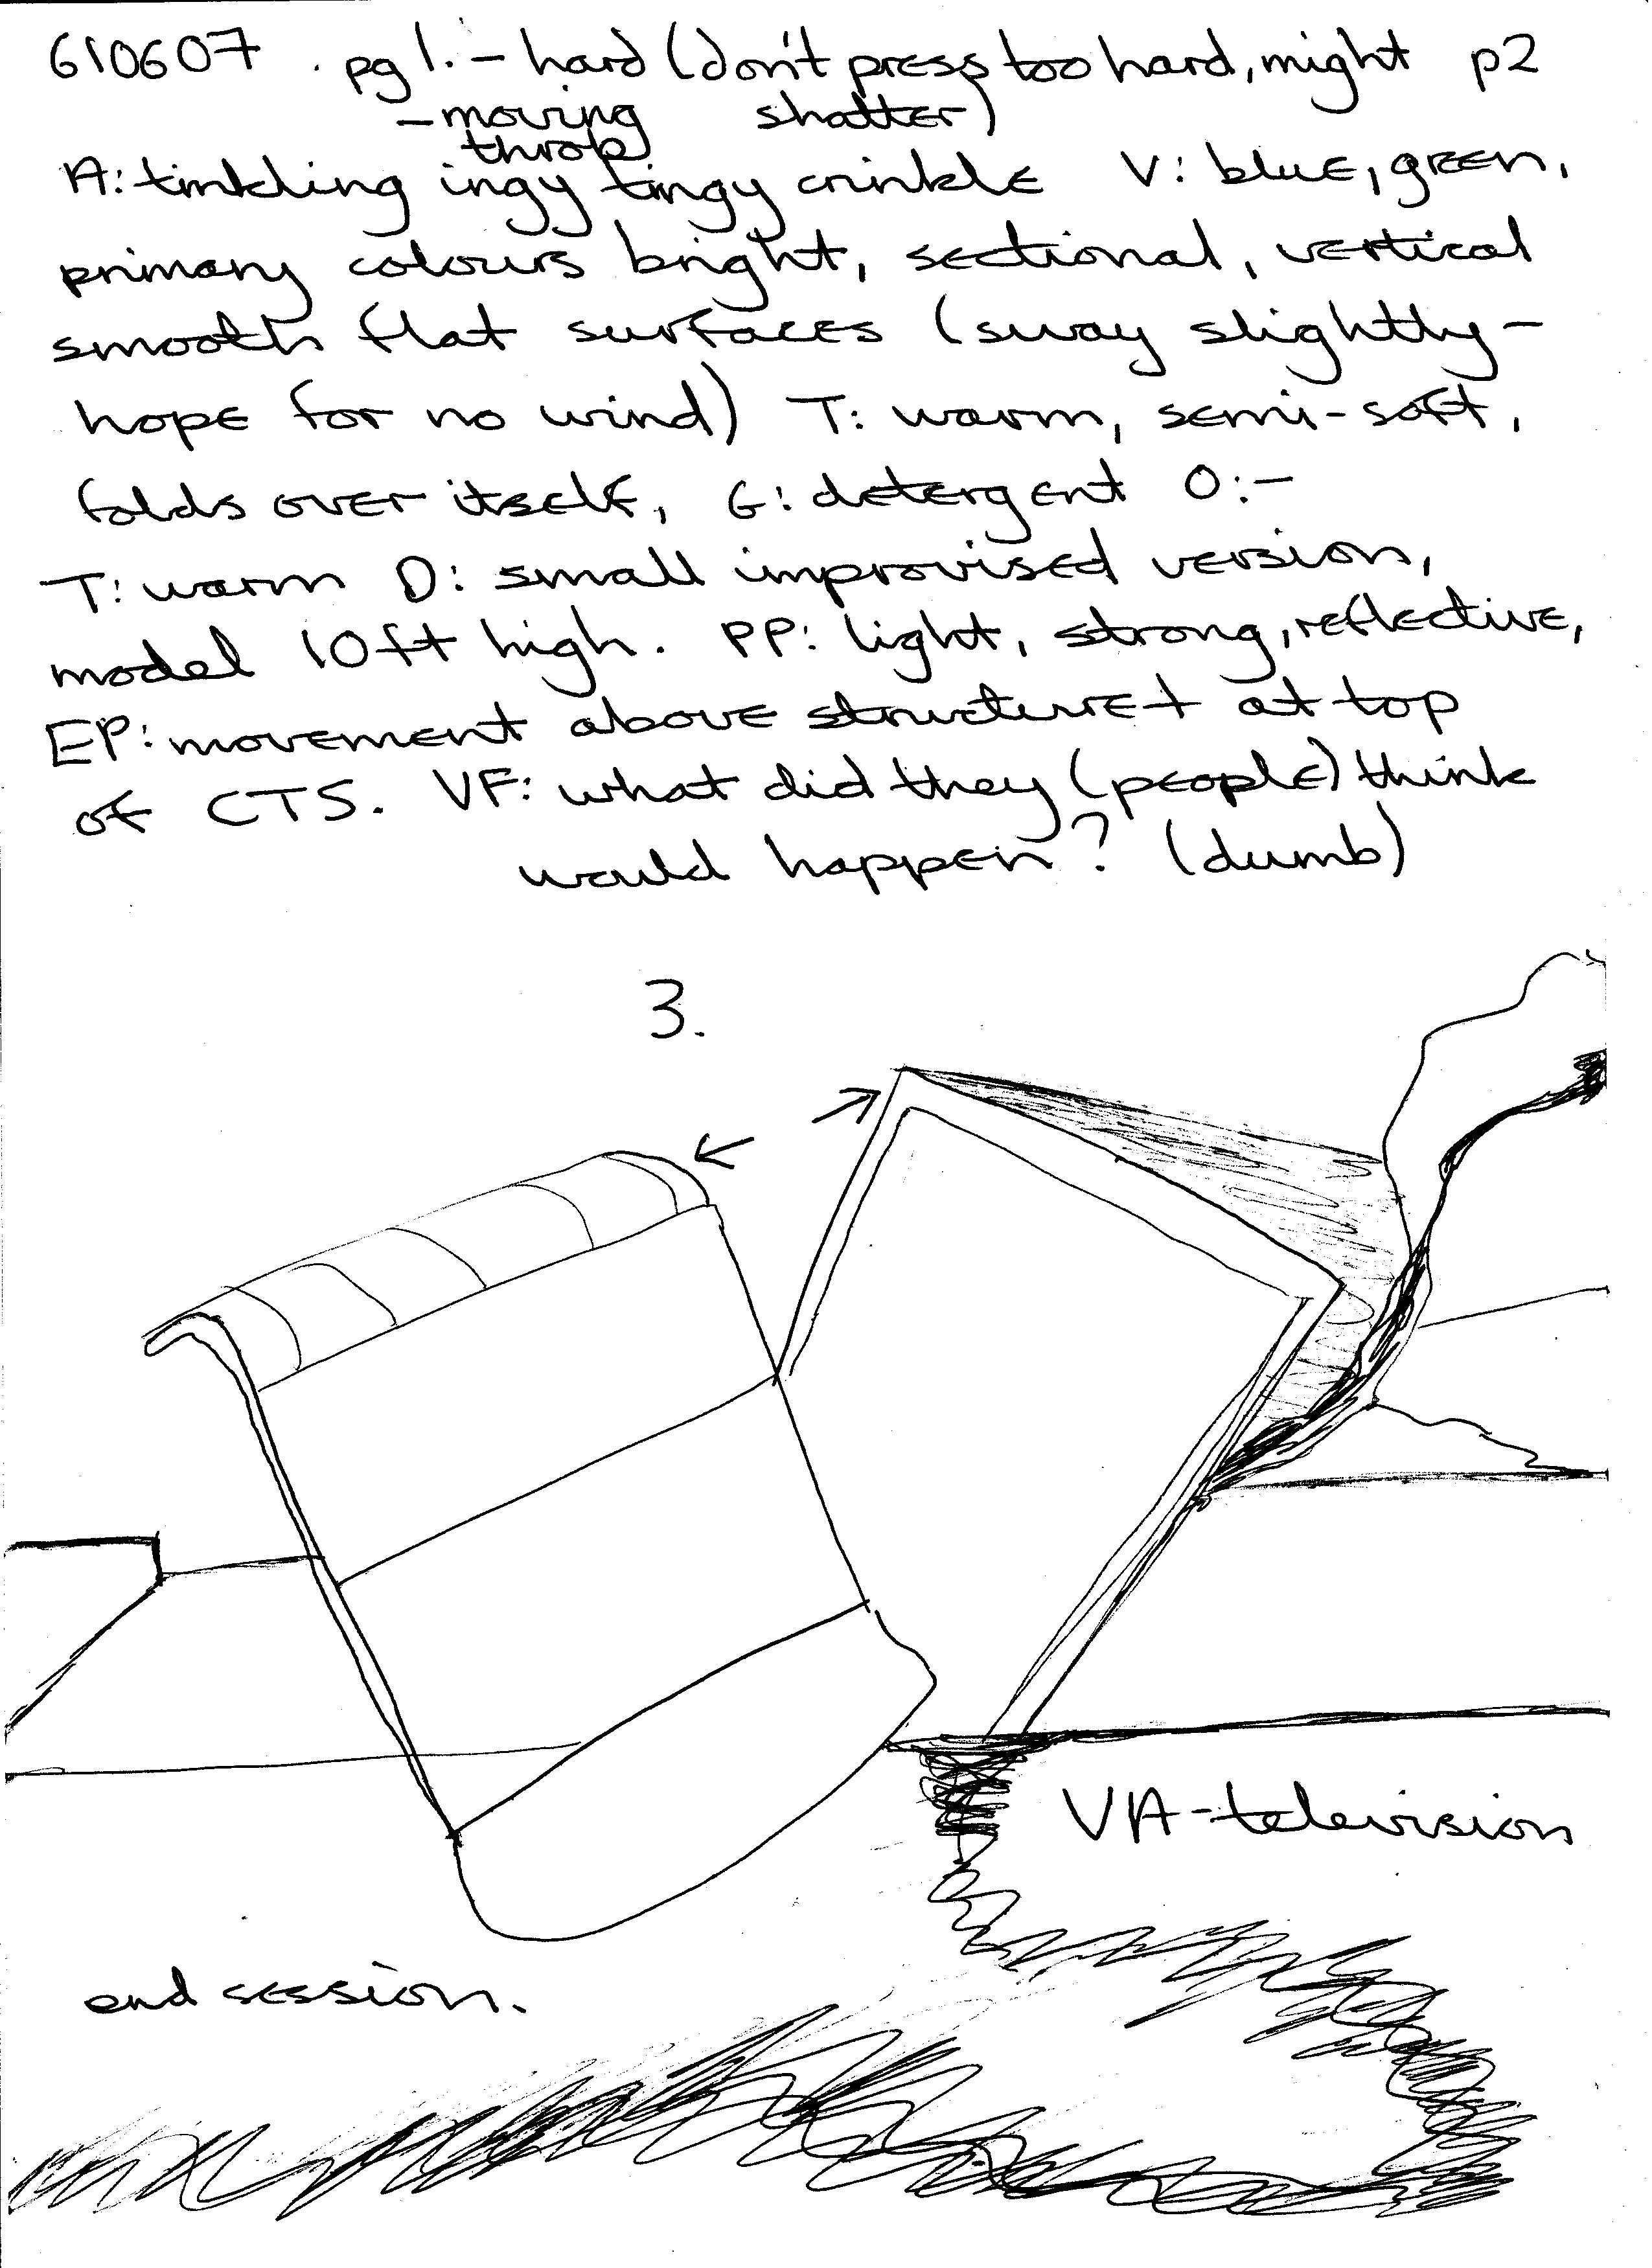 610607 . pg 1. - hard (don't press too hard, might p2
- moving shatter)
throb
A: tinkling ingy tingy crinkle V: blue, green,
primary colours bright, sectional, vertical
smooth flat surfaces (sway slightly -
hope for no wind) T: warm, semi-soft,
folds over itself, G: detergent O: -
T: warm D: small improvised version,
model 10ft high. PP: light, strong, reflective,
EP: movement above structure + at top
of CTS. VF: what did they (people) think
would happen? (dumb)
3.
VA - television
end session.